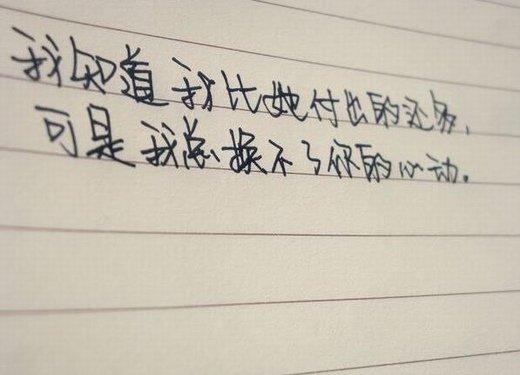 我知道我比她付出的还多,
可是我总换不了你的心动.